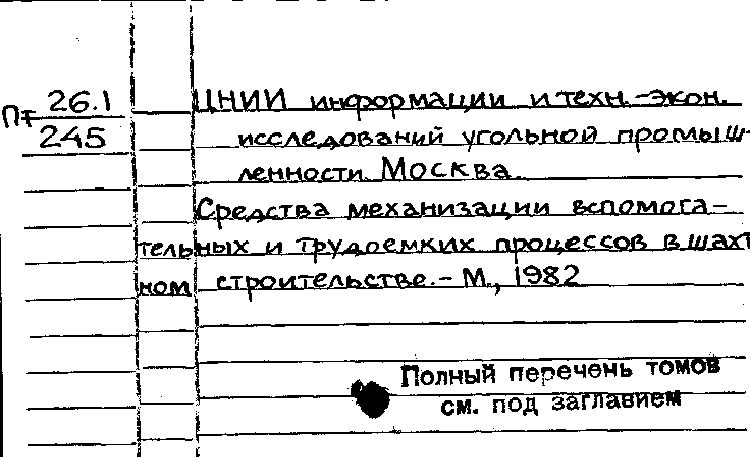 Пт 26.1
245
ЦНИИ информации и техн.-экон.
исследований угольной промыш-
ленности. Москва.
Средства механизации вспомога-
тельных и трудоемких процессов в шахт
ном строительстве. - М., 1982
Полный перечень томов
см. под заглавием